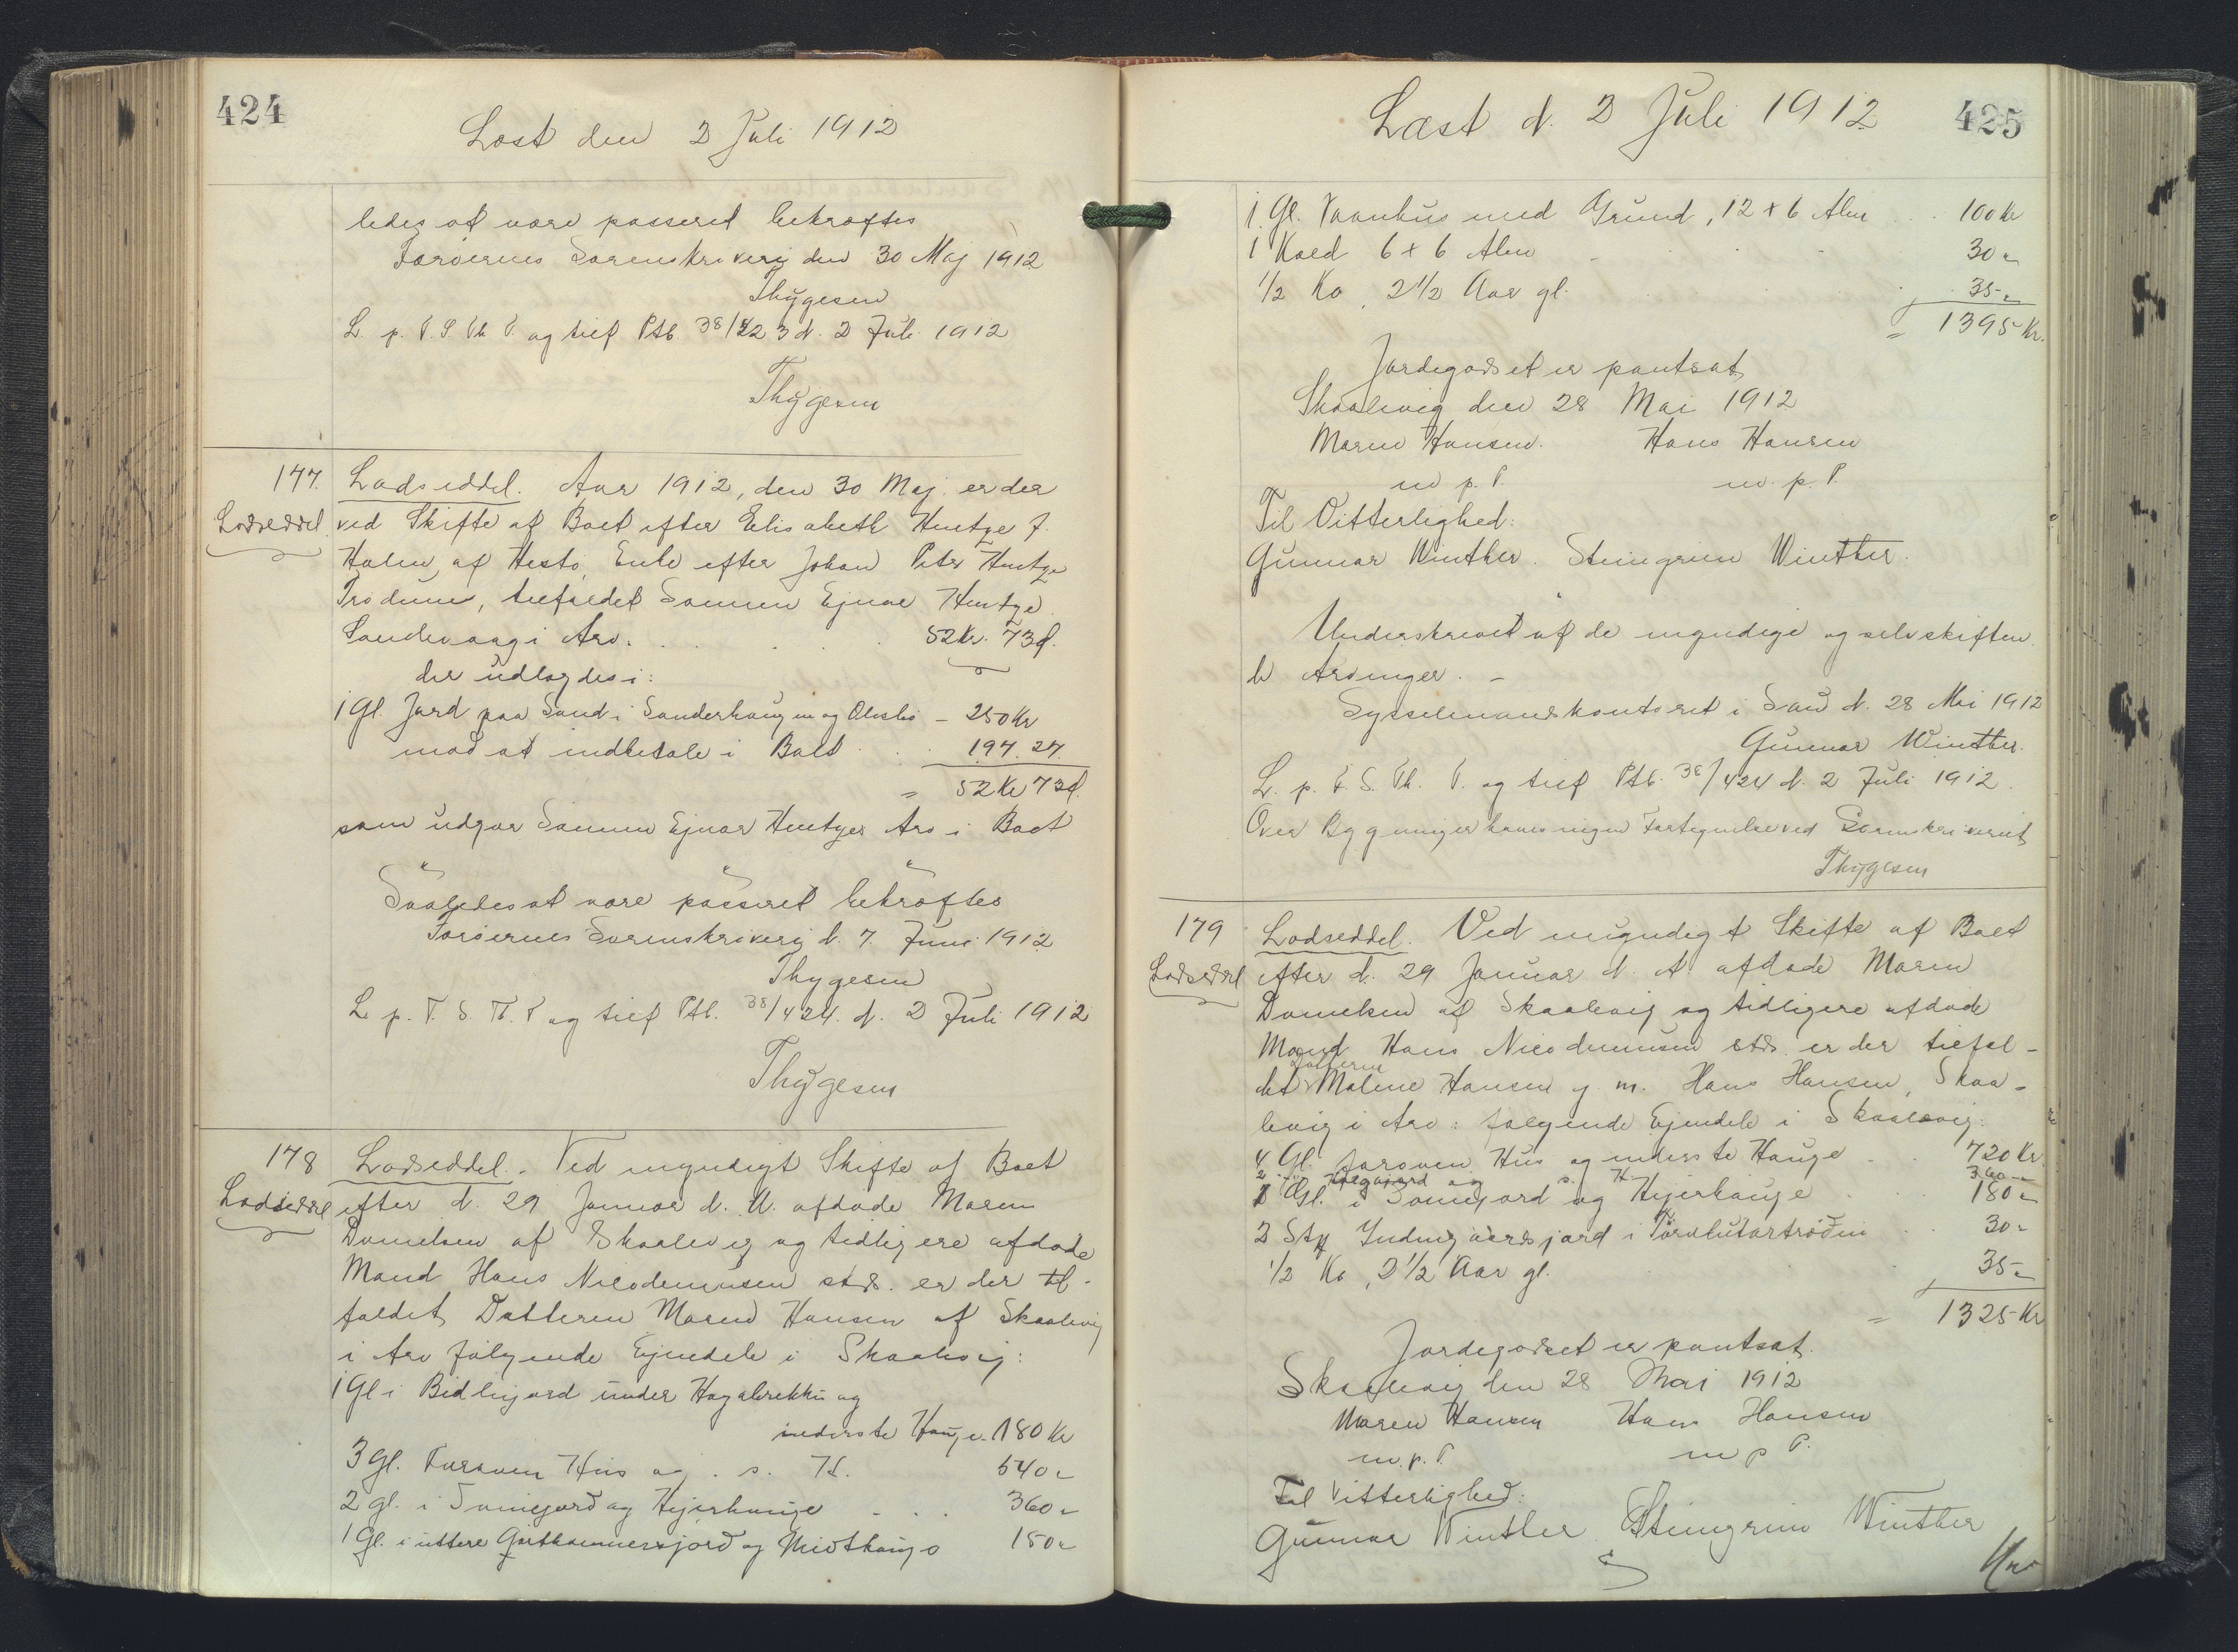 424
Læst den 2 Juli 1912
ledes at være passeret bekræftes
Færøernes Sorenskriveri den 30 Maj 1912
Thygesen
L. p. F. S. Th. P. og tilf Ptb. 38/423 d. 2 Juli 1912
Thygesen
177. Lodseddel. Aar 1912, den 30 Maj er der
Lodseddel. ved Skifte af Boet efter Elisabeth Hentze f.
Holm, af Hestø, Enke efter Johan Peter Hentze
Trodum, tilfaldet Sønnen Ejnar Hentze
Sandevaag i Arv. 52 Kr. 73 Ø.
der udlagdes i:
1 Gl. Jord paa Sand i Sanderhaugen og - 250 Kr
mod at indbetale i Boet 197. 27.
= 52 Kr 73 Ø.
som udgør Sønnen Ejnar Hentzes Arv i Boet
Saaledes at være passeret bekræftes
Færøernes Sorenskriveri d. 7. Juni 1912
Thygesen
L. p. F. S. Th. P og tilf Ptb. 38/424. d. 2 Juli 1912
Thygesen
178 Lodseddel. Ved myndigt Skifte af Boet
Lodseddel efter d. 29 Januar d. A. afdøde Maren
Danielsen af Skaalevig og tidligere afdøde
Mand Hans Nicodemusen stds. er der til-
faldet Datteren Maren Hansen af Skaalevig
i Arv følgende Ejendele i Skaalevig:
1 Gl i Bidlugjord under Hagabrekku og
inderste Hauge - 180 Kr
3 Gl. Foroven Hus og i. s. H. 540 "
2 gl. i Innigjord og Hejerhauge 360 "
1 Gl. i uttere Gjerthammersjord og Midthauge 150 "
Læst d. 2 Juli 1912 425
1. Gl. Vaanhus med Grund, 12 x 6 Alen 100 Kr
1 Koed 6 x 6 Alen 30 "
1/2 Ko, 2 1/2 Aar gl. 35 "
= 1395 Kr.
Jordegodset er pantsat
Skaalevig den 28 Mai 1912
Maren Hansen. Hans Hansen
m p. P. m. p. P.
Til Vitterlighed:
Gunnar Winther. Steingrim Winther.
Underskrevet af de myndige og selvskiften
de Arvinger. -
Sysselmandskontoret i Sand d. 28 Mai 1912
Gunnar Winther.
L. p. F. S. Th. P. og tilf Ptb. 38/424 d. 2 Juli 1912.
Over Bygninger haves ingen Fortegnelse ved Sorenskriveriet
Thygesen
179 Lodseddel. Ved myndigt Skifte af Boet
Lodseddel efter d. 29 Januar d. A. afdøde Maren
Danielsen af Skaalevig og tidligere afdøde
Mand Hans Nicodemusen stds. er der tilfal-
Datteren
det Malene Hansen g. m. Hans Hansen, Skaa-
levig i Arv: følgende Ejendele i Skaalevig:
4 Gl. foroven Hus og inderste Hauge 720 Kr.
2 - og s. H. 360 "
1 Gl. i Innigjord og Hejerhauge 180 "
2 Stk Indengaardsjord i 30 "
1/2 Ko, 2 1/2 Aar gl. 35 "
= 1325 Kr
Jordegodset er pantsat.
Skaalevig den 28 Mai 1912
Maren Hansen Hans Hansen
m. p. P. m p P.
Til Vitterlighed:
Gunnar Winther Steingrim Winther